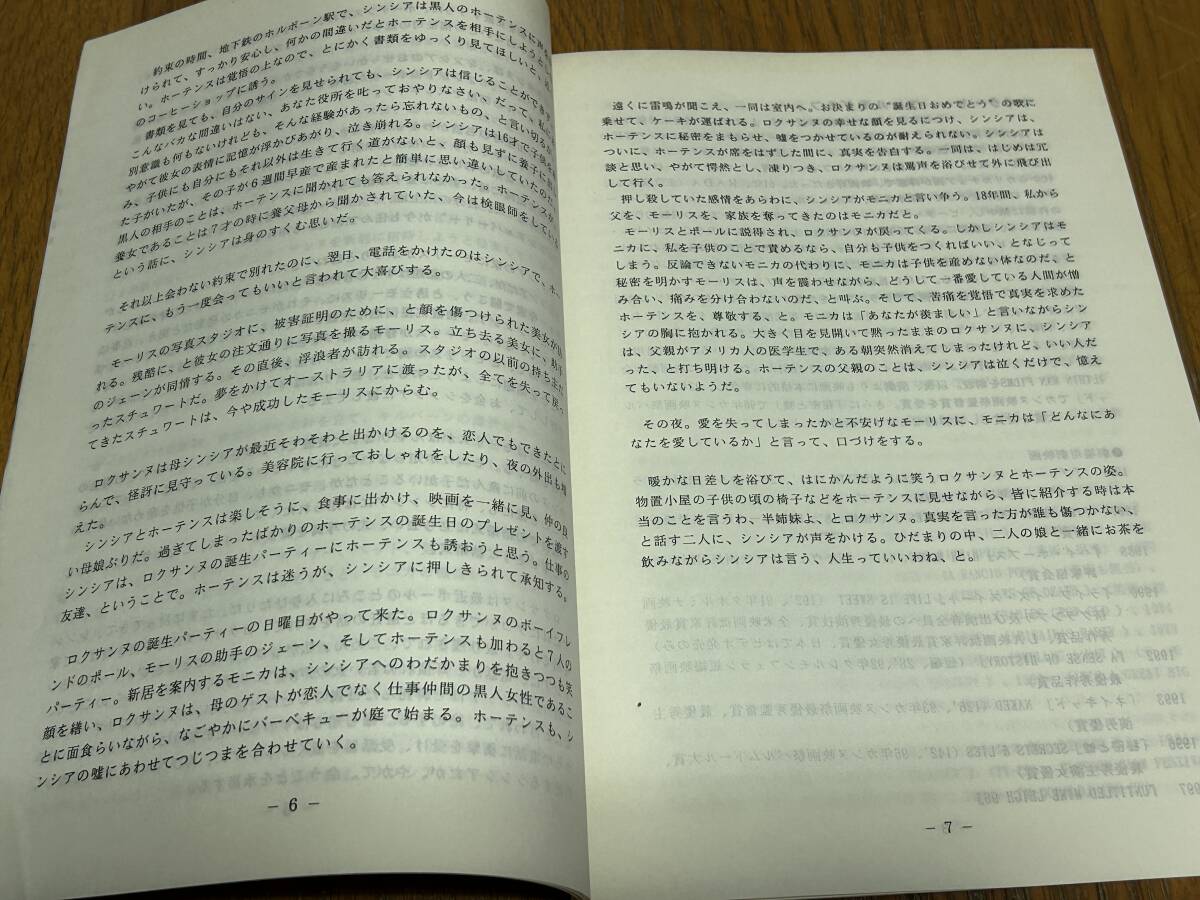 約束の時間、地下鉄のホルボーン駅で、シンシアは黒人のホーテンスに声を
けられて、すっかり安心し、何かの間違いだとホーテンスを相手にしようと
い。ホーテンスは覚悟の上なので、とにかく書類をゆっくり見てほしいと、
のコーヒーショップに誘う。
書類を見ても、自分のサインを見せられても、シンシアは信じることができず
こんなバカな間違いはない、あなた役所を叱っておやりなさい、だって、私に
別意識も何もないけれども、そんな経験があったら忘れないもの、と言い切るが
やがて彼女の表情に記憶が浮かびあがり、泣き崩れる。シンシアは16才で子供を
み、子供にも自分にもそれ以外は生きて行く道がないと、顔も見ずに養子に出
た子がいたが、その子が6週間早産で産まれたと簡単に思い違いしていたのだ
黒人の相手のことは、ホーテンスに聞かれても答えられなかった。ホーテンスが
養女であることは7才の時に養父母から聞かされていた、今は検眼師をしている
という話に、シンシアは身のすくむ思いだ。
それ以上会わない約束で別れたのに、翌日、電話をかけたのはシンシアで、ホー
テンスに、もう一度会ってもいいと言われて大喜びする。
モーリスの写真スタジオに、被害証明のために、と顔を傷つけられた美女が訪
れる。残酷に、と彼女の注文通りに写真を撮るモーリス。立ち去る美女に、助手
のジェーンが同情する。その直後、浮浪者が訪れる。スタジオの以前の持ち主だ
ったスチュワートだ。夢をかけてオーストラリアに渡ったが、全てを失って戻っ
てきたスチュワートは、今や成功したモーリスにからむ。
ロクサンヌは母シンシアが最近そわそわと出かけるのを、恋人でもできたとに
らんで、怪訝に見守っている。美容院に行っておしゃれをしたり、夜の外出も増
えた。
シンシアとホーテンスは楽しそうに、食事に出かけ、映画を一緒に見、仲の良
い母娘ぶりだ。過ぎてしまったばかりのホーテンスの誕生日のプレゼントを渡す
シンシアは、ロクサンヌの誕生パーティーにホーテンスも誘おうと思う。仕事の
友達、ということで。ホーテンスは迷うが、シンシアに押しきられて承知する。
ロクサンヌの誕生パーティーの日曜日がやって来た。ロクサンヌのボーイフレ
ンドのポール、モーリスの助手のジェーン、そしてホーテンスも加わると7人の
パーティー。新居を案内するモニカは、シンシアへのわだかまりを抱きつつも笑
顔を繕い、ロクサンヌは、母のゲストが恋人でなく仕事仲間の黒人女性であるこ
とに面食らいながら、なごやかにバーベキューが庭で始まる。ホーテンスも、シ
ンシアの嘘にあわせてつじつまを合わせていく。
－ 6 －
遠くに雷鳴が聞こえ、一同は室内へ。お決まりの“誕生日おめでとう”の歌に
乗せて、ケーキが運ばれる。ロクサンヌの幸せな顔を見るにつけ、シンシアは、
ホーテンスに秘密をまもらせ、嘘をつかせているのが耐えられない。シンシアは
ついに、ホーテンスが席をはずした間に、真実を告白する。一同は、はじめは冗
談と思い、やがて愕然とし、凍りつき、ロクサンヌは罵声を浴びせて外に飛び出
して行く。
押し殺していた感情をあらわに、シンシアがモニカと言い争う。18年間、私から
父を、モーリスを、家族を奪ってきたのはモニカだと。
モーリスとポールに説得され、ロクサンヌが戻ってくる。しかしシンシアはモ
ニカに、私を子供のことで責めるなら、自分も子供をつくればいい、となじって
しまう。反論できないモニカの代わりに、モニカは子供を産めない体なのだ、と
秘密を明かすモーリスは、声を震わせながら、どうして一番愛している人間が憎
み合い、痛みを分け合わないのだ、と叫ぶ。そして、苦痛を覚悟で真実を求めた
ホーテンスを、尊敬する、と。モニカは「あなたが羨ましい」と言いながらシン
シアの胸に抱かれる。大きく目を見開いて黙ったままのロクサンヌに、シンシア
は、父親がアメリカ人の医学生で、ある朝突然消えてしまったけれど、いい人だ
った、と打ち明ける。ホーテンスの父親のことは、シンシアは泣くだけで、憶え
てもいないようだ。
その夜。愛を失ってしまったかと不安げなモーリスに、モニカは「どんなにあ
なたを愛しているか」と言って、口づけをする。
暖かな日差しを浴びて、はにかんだように笑うロクサンヌとホーテンスの姿。
物置小屋の子供の頃の椅子などをホーテンスに見せながら、皆に紹介する時は本
当のことを言うわ、半姉妹よ、とロクサンヌ。真実を言った方が誰も傷つかない、
と話す二人に、シンシアが声をかける。ひだまりの中、二人の娘と一緒にお茶を
飲みながらシンシアは言う、人生っていいわね、と。
－ 7 －